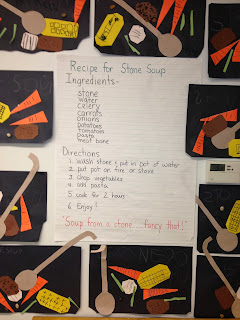 Recipe for Stone Soup
Ingredients-
stone
water
celery
carrots
onions
potatoes
tomatoes
pasta
meat bone
Directions
1. wash stone & put in pot of water
2. put pot on fire or stove
3. chop vegetables
4. add pasta
5. cook for 2 hours
6. Enjoy!
"Soup from a stone... fancy that!"